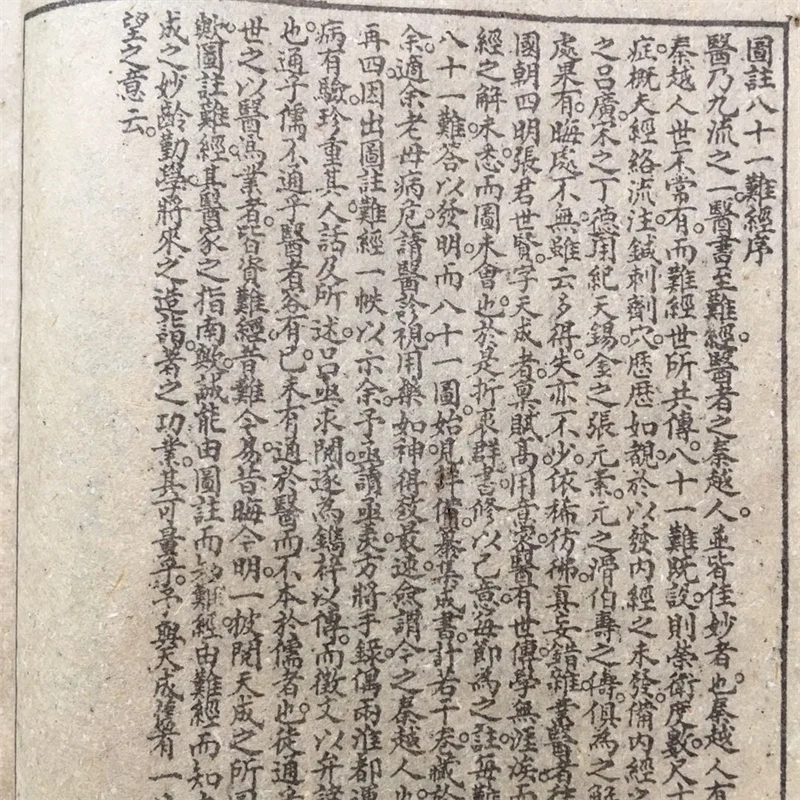 圖註八十一難經序
醫乃九流之一醫書至難經醫者之秦越人並皆佳妙者也秦越人有
秦越人世不常有而難經世所共傳八十一難既設則榮衛度數尺寸
症概夫經絡流注鍼刺劑穴歷歷如覩於以發內經之未發備內經之
之呂廣宋之丁德用紀天錫金之張元素元之滑伯壽之儔俱為之解
處果有晦處不無雖云多得失亦不少依稀彷彿真妄錯雜業醫者往
國朝四明張君世賢字天成者稟賦高用意密醫有世傳學無涯涘而
經之解未悉而圖未會也於是折衷群書修以己意每節為之註每難
八十一難答以發明而八十一圖始見詳備纂集成書計若干卷藏於
余適余老母病危請醫診視用藥如神得效最速僉謂今之秦越人也
再四因出圖註難經一帙以示余予亟讀亟羨方將手錄偶兩淮都運
病有驗珍重其人話及所述呂亟求閱遂為鐫梓以傳而徵文以弁諸
也通乎儒不通乎醫者容有已未有通於醫而不本於儒者也徒通乎
世之以醫為業者皆資難經昔難今易昔晦今明一披閱天成之所
歟圖註難經其醫家之指南歟誠能由圖註而知難經由難經而知
成之妙齡勤學將來之造詣著之功業其可量乎予與天成僅有一
望之意云